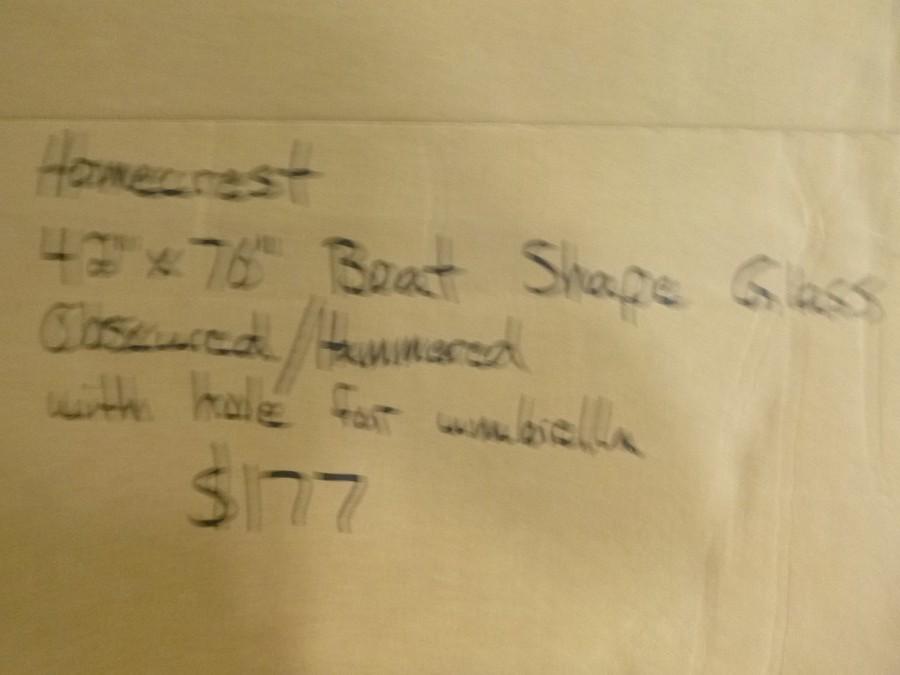 Homecrest
42" x 76" Boat Shape Glass
Obscured/Hammered
with hole for umbrella
$177